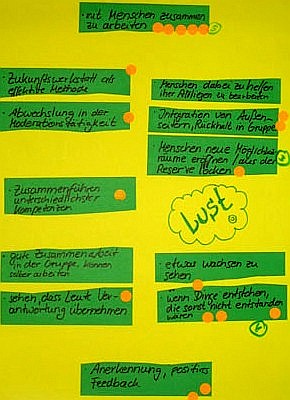 · mit Menschen zusammen
zu arbeiten
· Zukunftswerkstatt als
effektive Methode
· Abwechslung in der
Moderationstätigkeit
· Zusammenführen
unterschiedlichster
Kompetenzen
· gute Zusammenarbeit
in der Gruppe, können
selber arbeiten
· sehen, dass Leute Ver-
antwortung übernehmen
Menschen dabei zu helfen
ihr Anliegen zu bearbeiten
Integration von Außen-
seitern, Rückhalt in Gruppe
· Menschen neue Möglichkeits-
räume eröffnen / aus der
Reserve locken
Lust
· etwas wachsen zu
sehen
· wenn Dinge entstehen,
die sonst nicht entstanden
wären
· Anerkennung, positives
Feedback